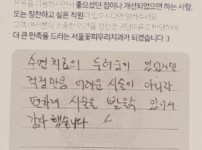 좋았던 점이나 개선되었으면 하는 사항,
또는 칭찬하고 싶은 직원이
더 큰 만족을 드리는 서울꽃피우리치과가 되겠습니다 :)
수면치료의 두려움이 있었지만
걱정만큼 어려운 시술이 아니라
편하게 시술을 받을 수 있어서
감사했습니다